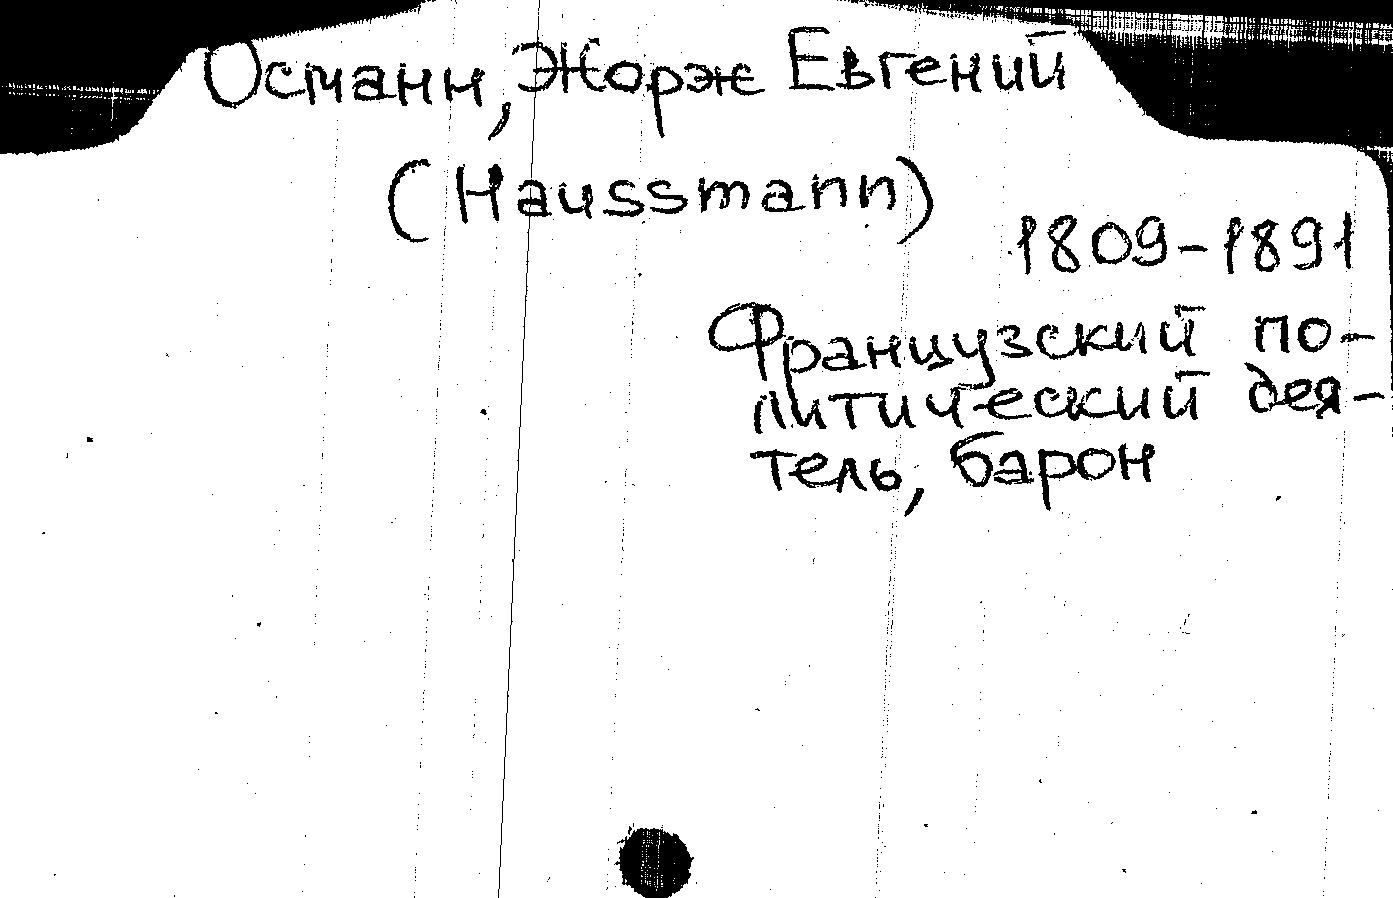 Османн, Жорж Евгений
(Haussmann)
1809-1891
Французский по-
литический дея-
тель, барон